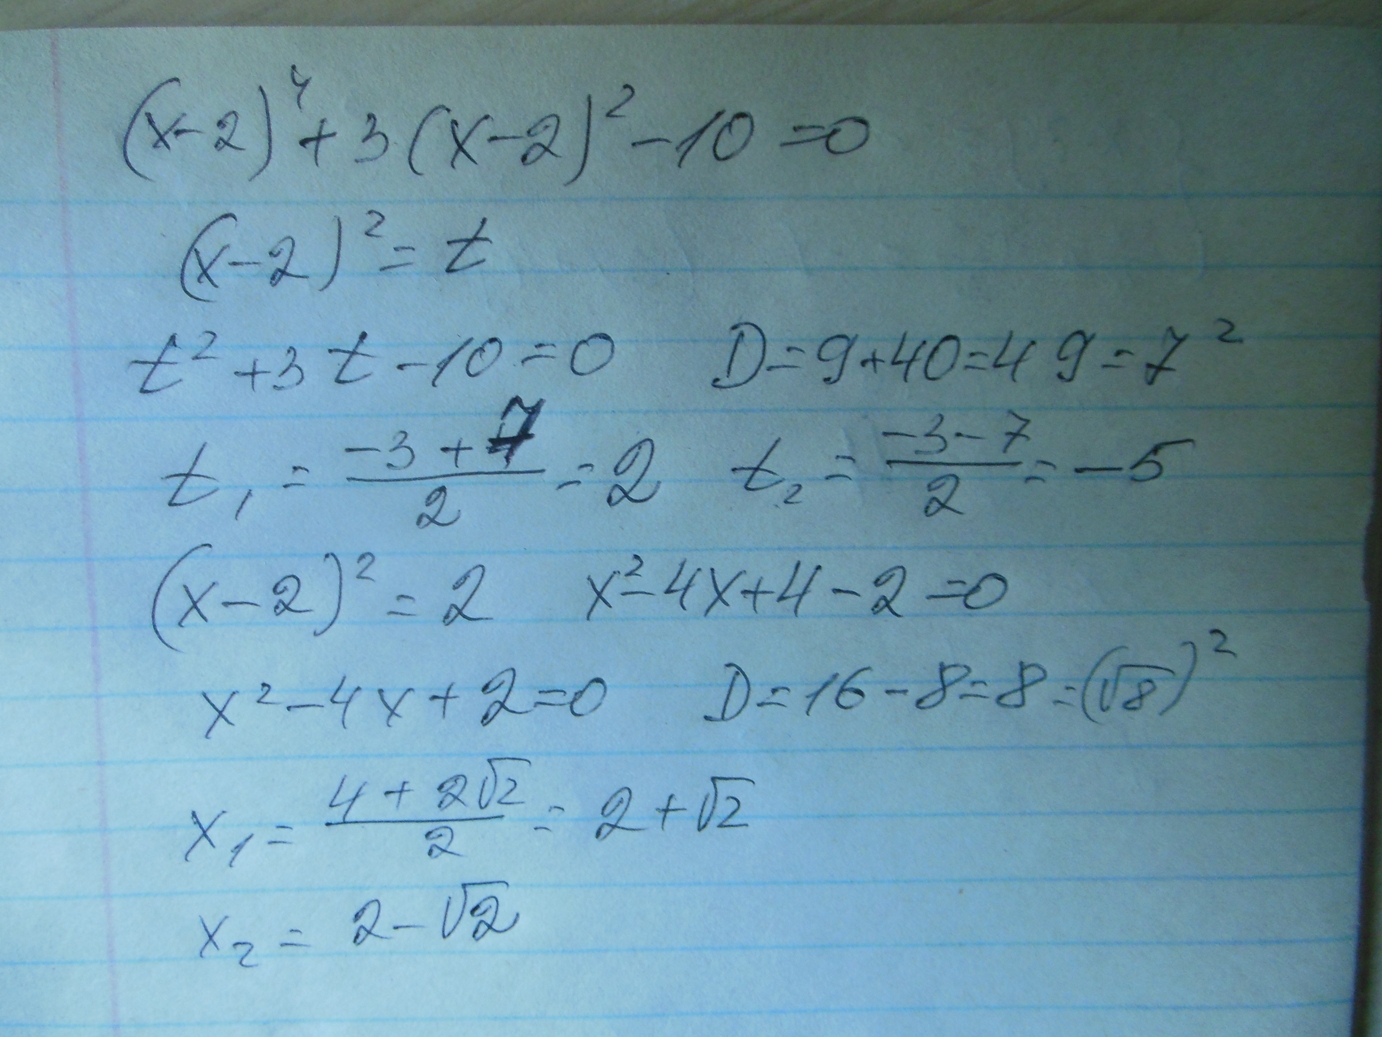 (x-2)⁴+3(x-2)²-10=0
(x-2)²=t
t²+3t-10=0 D=9+40=49=7²
t₁=(-3+7)/2=2 t₂=(-3-7)/2=-5
(x-2)²=2 x²-4x+4-2=0
x²-4x+2=0 D=16-8=8=(√8)²
x₁=(4+2√2)/2=2+√2
x₂=2-√2